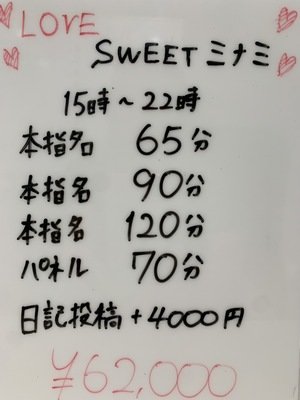 LOVE
SWEETミナミ
15時～22時
本指名 65分
本指名 90分
本指名 120分
パネル 70分
日記投稿+4000円
¥62,000